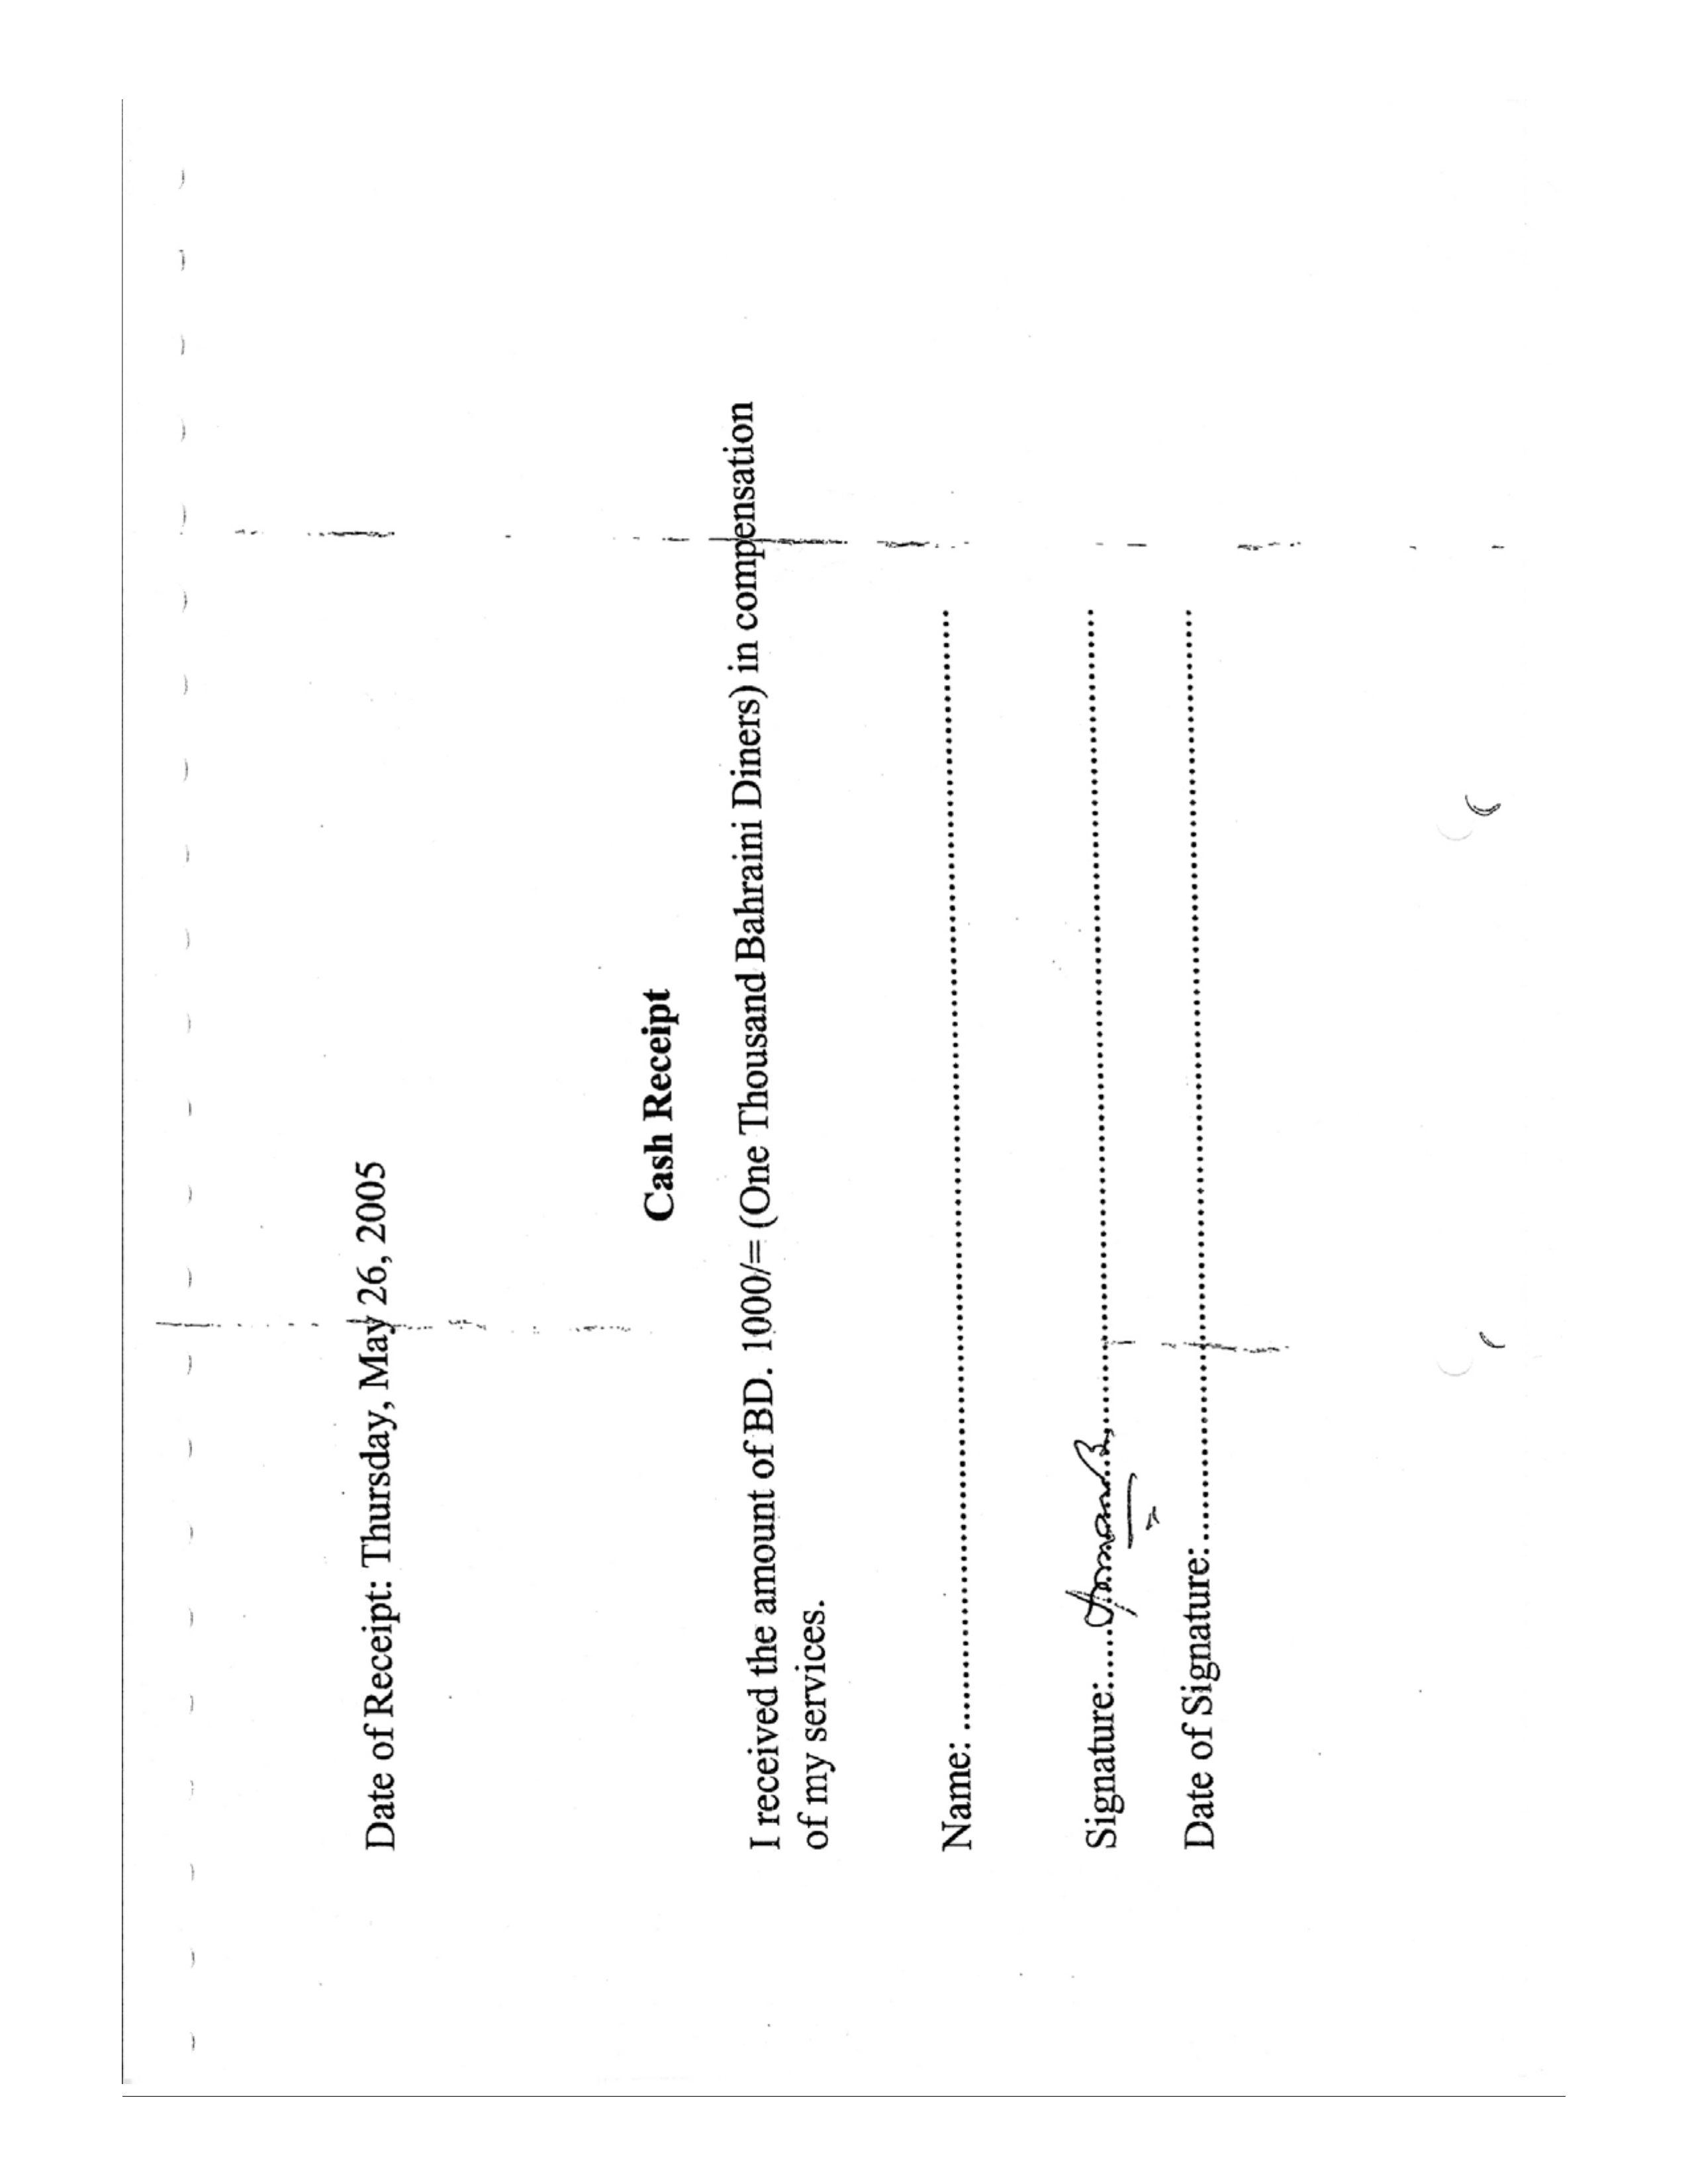 Date of Receipt: Thursday, May 26, 2005
Cash Receipt
I received the amount of BD. 1000/= (One Thousand Bahraini Diners) in compensation
of my services.
Name: ................................................................
Signature: ................................................................
Date of Signature: ................................................................